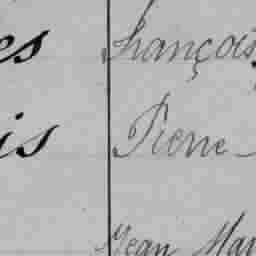 es François
is Pierre
Jean Mar